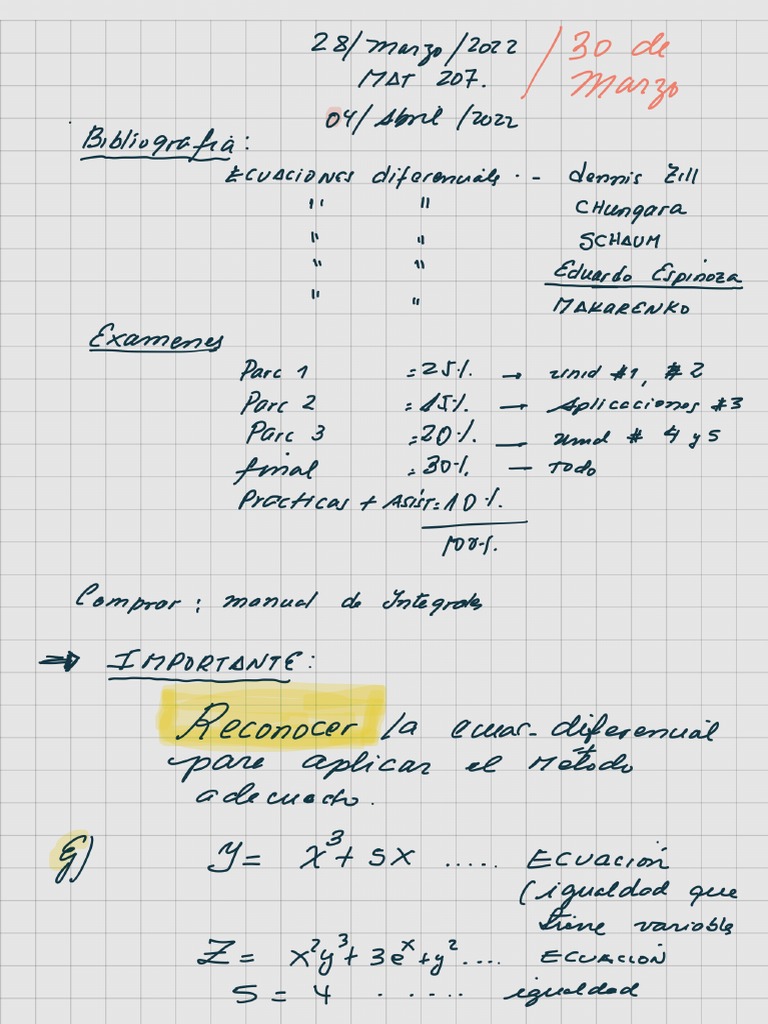 28/Marzo/2022 / 30 de
MAT 207. Marzo
04/Abril/2022
Bibliografia:
ECUACIONES diferenciales .- dennis Zill
" " CHungara
" " SCHAUM
" " Eduardo Espinoza
" " MAKARENKO
Examenes
Parc 1 = 25% → unid #1, #2
Parc 2 = 15% → Aplicaciones #3
Parc 3 = 20% — unid # 4 y 5
final = 30% — Todo
Practicas + Asist = 10%.
100%.
Comprar: manual de Integrales
→ IMPORTANTE:
Reconocer la ecuac. diferencial
para aplicar el Método
adecuado.
Ej) Y = x³ + 5x ..... ECUACIÓN
(igualdad que
tiene variable
Z = x²y³ + 3eˣ + y² .... ECUACIÓN
5 = 4 ...... igualdad